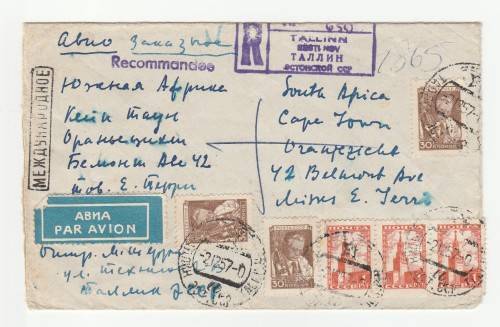 Авио Заказное
Recommandée
R
№ 650
TALLINN
EESTI NSV
ТАЛЛИН
ЭСТОНСКОЙ ССР
1065
МЕЖДУНАРОДНОЕ
Южная Африка
Кейп Таун
Ораньезихт
Белмонт Аве 42
тов. Е. Терри
South Africa
Cape Town
Oranjezicht
42 Belmont Ave
E. Terri
АВИА
PAR AVION
Отпр.
ул.
Таллин ЭССР
30
ПОЧТА СССР
30
ПОЧТА
СССР
ПОЧТА
СССР
ПОЧТА
СССР
30
-2 12 57-0